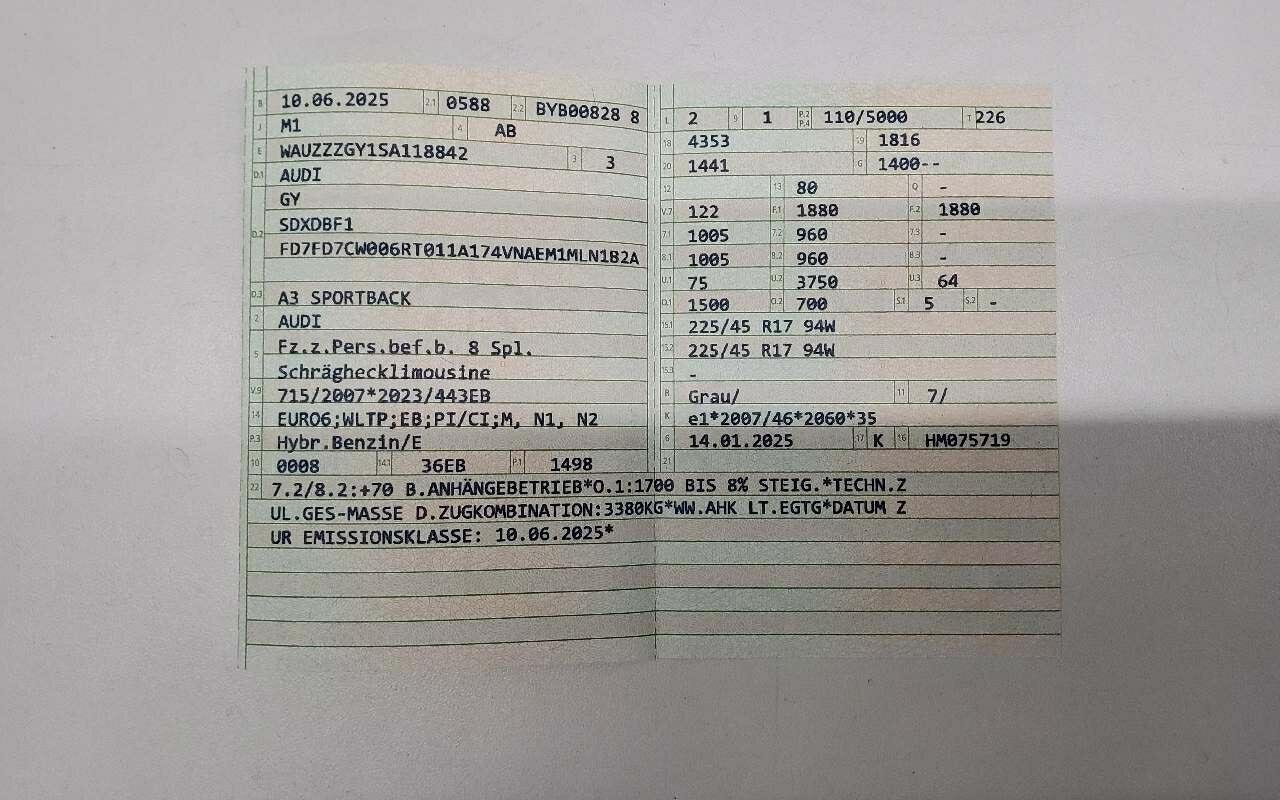 B 10.06.2025 2.1 0588 2.2 BYB00828 8
J M1 4 AB
E WAUZZZGY1SA118842 3 3
D.1 AUDI
GY
D.2 SDXDBF1
FD7FD7CW006RT011A174VNAEM1MLN1B2A
D.3 A3 SPORTBACK
2 AUDI
5 Fz.z.Pers.bef.b. 8 Spl.
Schräghecklimousine
V.9 715/2007*2023/443EB
14 EURO6;WLTP;EB;PI/CI;M, N1, N2
P.3 Hybr.Benzin/E
10 0008 14.1 36EB P.1 1498
L 2 9 1 P.2 P.4 110/5000 T 226
18 4353 19 1816
20 1441 G 1400--
12 13 80 Q -
V.7 122 F.1 1880 F.2 1880
7.1 1005 7.2 960 7.3 -
8.1 1005 8.2 960 8.3 -
U.1 75 U.2 3750 U.3 64
O.1 1500 O.2 700 S.1 5 S.2 -
15.1 225/45 R17 94W
15.2 225/45 R17 94W
15.3 -
R Grau/ 11 7/
K e1*2007/46*2060*35
6 14.01.2025 17 K 16 HM075719
21
22 7.2/8.2:+70 B.ANHÄNGEBETRIEB*O.1:1700 BIS 8% STEIG.*TECHN.Z
UL.GES-MASSE D.ZUGKOMBINATION:3380KG*WW.AHK LT.EGTG*DATUM Z
UR EMISSIONSKLASSE: 10.06.2025*